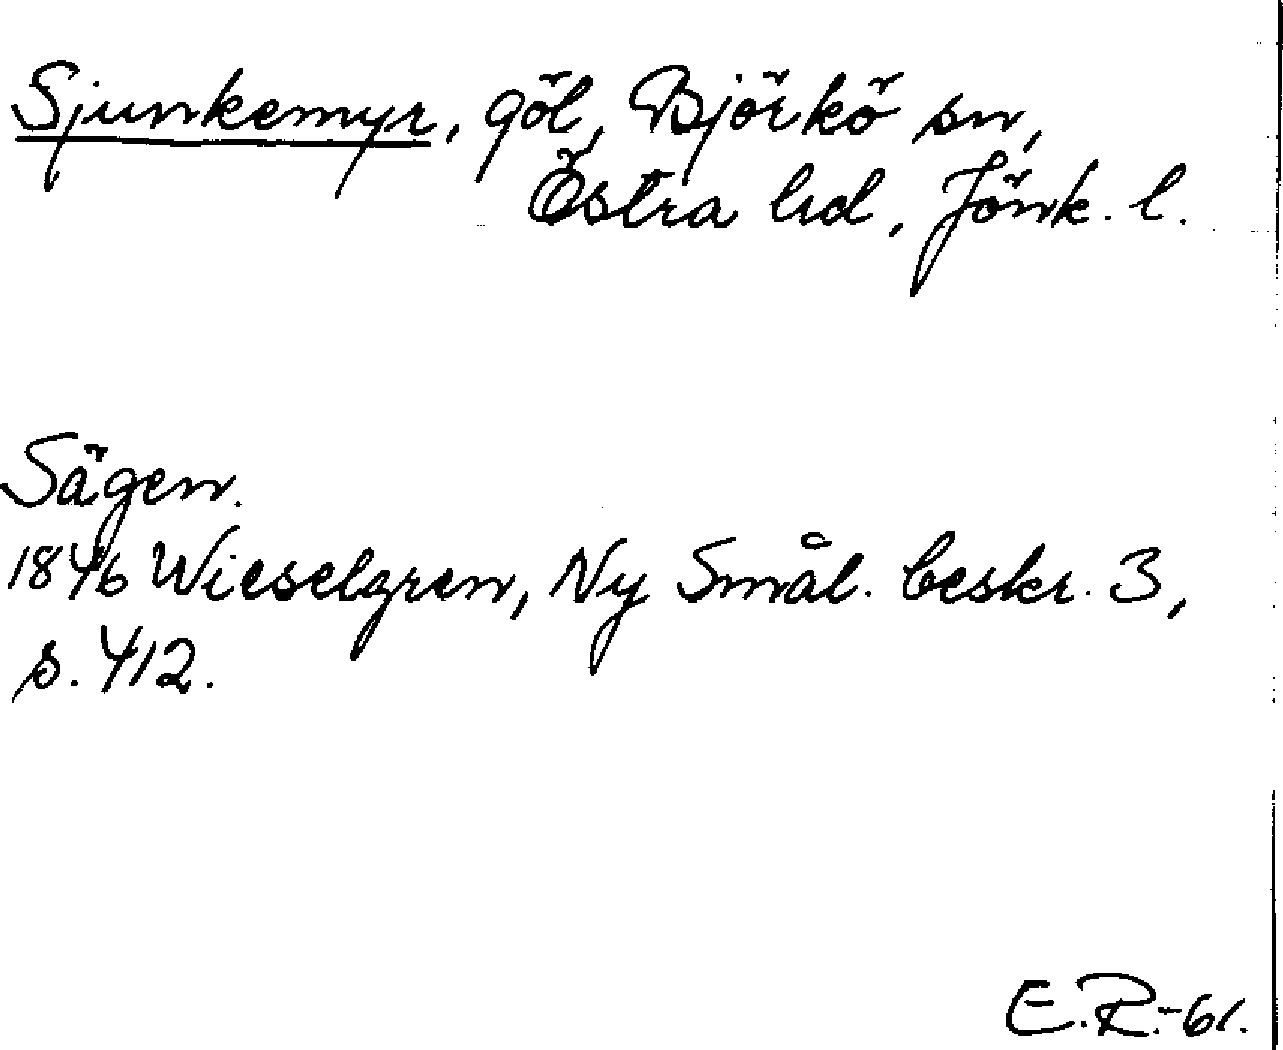 Sjunkemyr, göl, Björkö sn,
Östra hd, Jönk. l.
Sägen.
1846 Wieselgren, Ny Smål. beskr. 3,
s. 412.
E.R.-61.